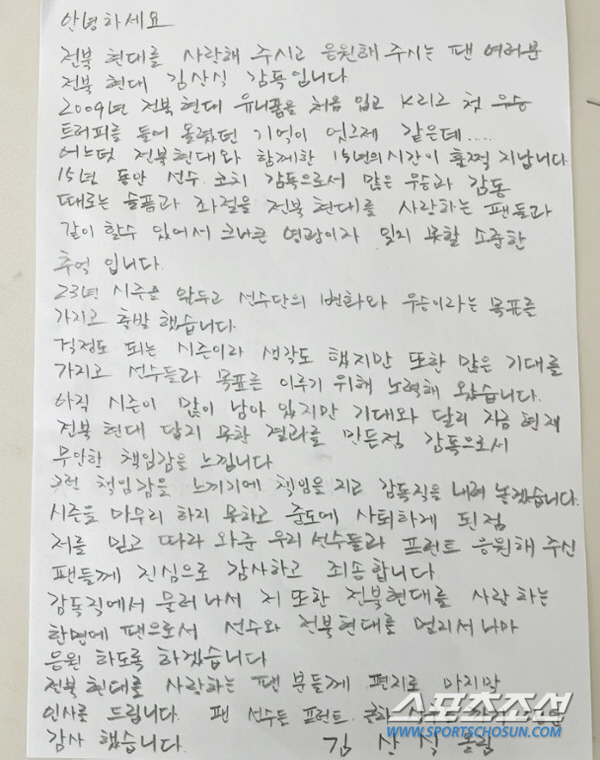 안녕하세요
전북 현대를 사랑해 주시고 응원해 주시는 팬 여러분
전북 현대 김상식 감독입니다
2009년 전북현대 유니폼을 처음 입고 K리그 첫 우승
트러피를 들어 올렸던 기억이 엇그제 같은데.....
어느덧 전북현대와 함께한 15년의 시간이 훌쩍 지납니다.
15년 동안 선수.코치 감독으로서 많은 우승과 감동
때로는 슬픔과 좌절을 전북 현대를 사랑하는 팬들과
같이 할수 있어서 크나큰 영광이자 잊지 못할 소중한
추억 입니다.
23년 시즌을 앞두고 선수단의 변화와 우승이라는 목표를
가지고 출발 했습니다.
걱정도 되는 시즌이라 생각도 했지만 또한 많은 기대를
가지고 선수들과 목표를 이루기 위해 노력해 왔습니다.
아직 시즌이 많이 남아 있지만 기대와 달리 지금 현재
전북 현대 답지 못한 결과를 만든점 감독으로서
무안한 책임감을 느낍니다
그런 책임감을 느끼기에 책임을 지고 감독직을 내려 놓겠습니다.
시즌을 마무리 하지 못하고 중도에 사퇴하게 된점
저를 믿고 따라 와준 우리 선수들과 프런트 응원해 주신
팬들께 진심으로 감사하고 죄송합니다
감독직에서 물러나서 저 또한 전북현대를 사랑하는
한명에 팬으로서 선수와 전북현대를 멀리서 나마
응원 하도록 하겠습니다
전북 현대를 사랑하는 팬 분들께 편지로 마지막
인사를 드립니다. 팬 선수들 프런트.
감사 했습니다. 김 상 식 올림
스포츠조선
WWW.SPORTSCHOSUN.COM